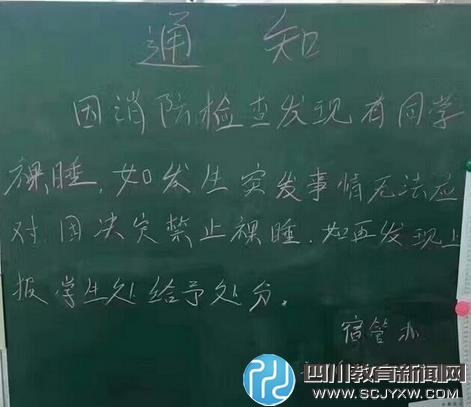 通 知
因消防检查发现有同学
裸睡，如发生突发事情无法应
对 因决定禁止裸睡．如再发现上
报学生处给予处分。
宿管办
四川教育新闻网
WWW.SCJYXW.COM